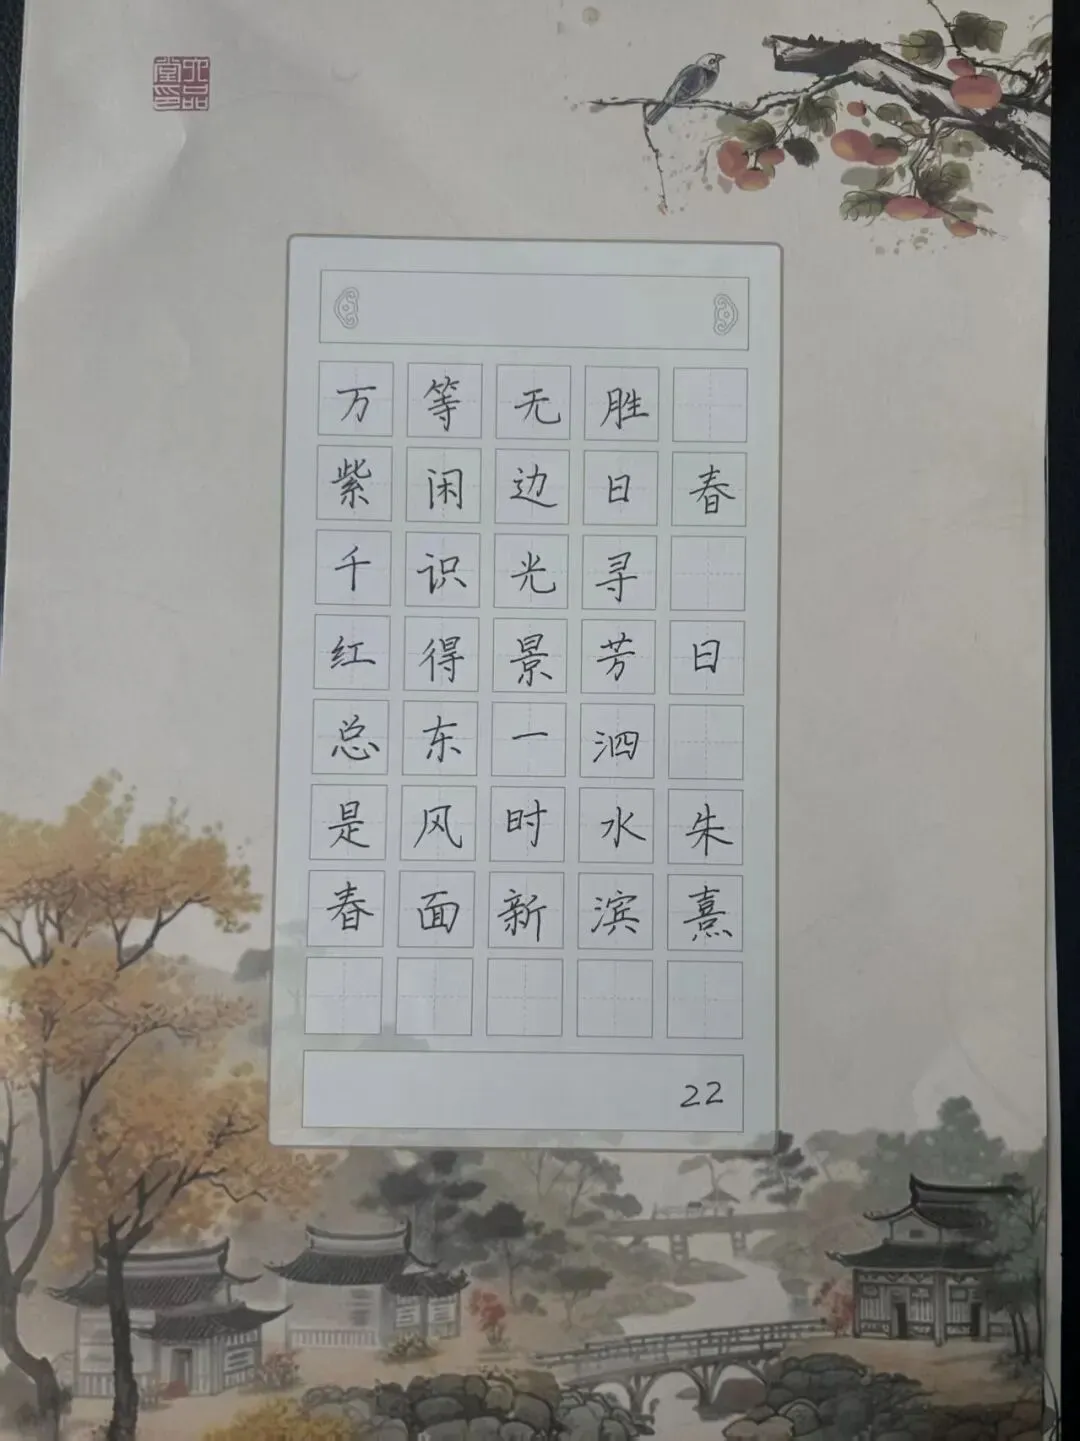 春日朱熹
胜日寻芳泗水滨
无边光景一时新
等闲识得东风面
万紫千红总是春
22